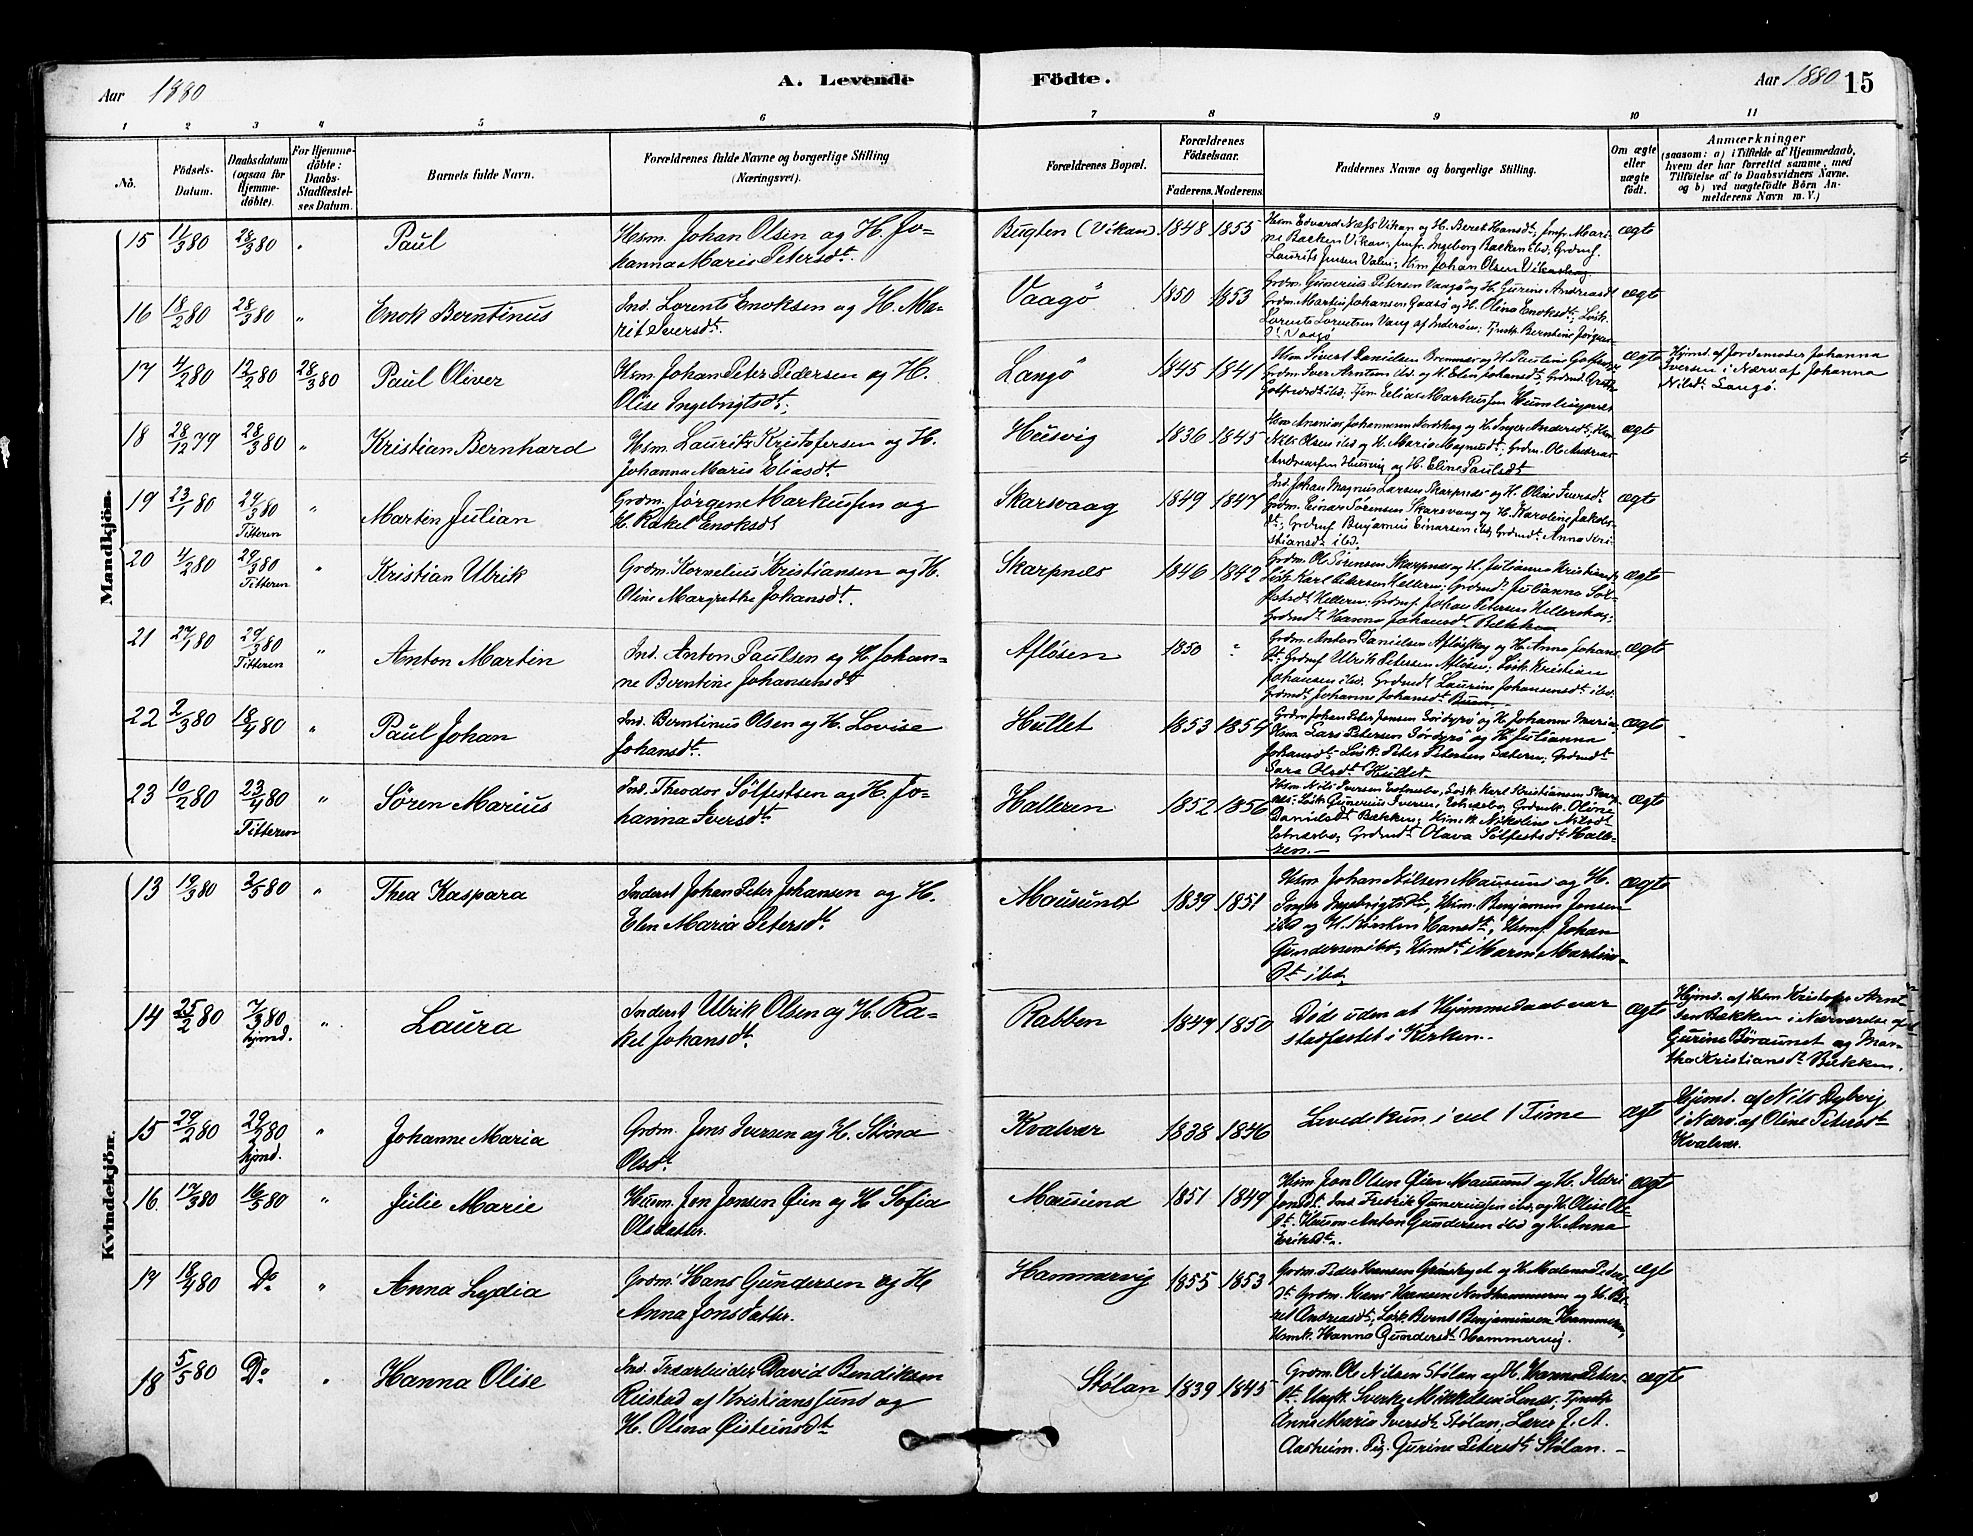 Aar 1880
A. Levende Födte.
Aar 1880 15
1 2 3 4 5 6 7 8 9 10 11
No.
Födsels-Datum.
Daabsdatum (ogsaa for Hjemme-döbte).
For Hjemme-döbte: Daabs-Stadfæstel-ses Datum.
Barnets fulde Navn.
Forældrenes fulde Navne og borgerlige Stilling (Næringsvei).
Forældrenes Bopæl.
Forældrenes Födselsaar.
Faderens. Moderens.
Faddernes Navne og borgerlige Stilling.
Om ægte eller uægte födt.
Anmærkninger
(saasom: a) i Tilfælde af Hjemmedaab, hvem der har forrettet samme, med Tilföielse af to Daabsvidners Navne. og b) ved uægtefödte Börn An-melderens Navn m. V.)
Mandkjön.
15 11/3 80 28/3 80 " Paul
Hsm. Johan Olsen og H. Jo-
hanna Marie Petersdt.
Bugten (Vikan) 1848 1855
Hsm Edvard Næss Vikan og H. Beret Hansdt; Jmfr. Mari-
ne Bakken Vikan; Jmfr. Ingeborg Bakken ibd; Grdmf.
Laurits Jensen Valen; Hsm Johan Olsen Vikanskog
ægte
16 18/2 80 28/3 80 " Enok Berntinus
Ind. Lorents Enoksen og H. Ma-
rit Iversdt.
Vaagö 1850 1853
Grdm. Gunerius Petersen Vaagö og H. Gurine Andreasdt
Grdm. Martin Johansen Gaasö og H. Olina Enoksdt; Løsk.
Lorents Lorentsen Vang af Inderöen; Tjnstp. Berntine
Vaagö
ægte
17 4/2 80 12/2 80 28/3 80 Paul Oliver
Hsm. Johan Peter Pedersen og H.
Olise Ingebrigtsdt;
Langö 1845 1841
Hsm Sivert Danielsen Bremnes og H. Pauline
Grdm. Iver Arntsen ibd og H. Elen Johansdt;
ibd; Elias Markussen Humlingsvær
ægte
Hjmd. af Jordemoder Johanna
Iversen i Nærv. af Johanna
Nilsdt Langö.
18 28/12 79 28/3 80 " Kristian Bernhard
Hsm. Laurits Kristofersen og H.
Johanna Marie Eliasdt.
Husvig 1836 1845
Hsm Ananias Johannesen Nordskag og H. Inger Andersdt; Hsm
Nils Olsen ibd og H. Marie Magnusdt; Grdm. Ole Andreas
Andreassen Husvig og H. Eline Paulsdt
ægte
19 23/1 80 29/3 80 Titteren " Martin Julian
Grdm. Jörgen Markussen og
H. Rakel Enoksdt
Skarsvaag 1849 1847
Ind. Johan Magnus Larsen Skarpnes og H. Oline Iversdt.
Grdm. Einar Sörensen Skarsvaag og H. Karoline Jakobs-
dt; Grdmf. Benjamin Einarsen ibd; Grdmdt. Anna Kri-
stiansdt ibd.
ægte
20 4/2 80 29/3 80 Titteren " Kristian Ulrik
Grdm. Kornelius Kristiansen og H.
Oline Margrethe Johansdt.
Skarpnes 1846 1842
Grdm. Ole Sörensen Skarpnes og H. Julianna Kristiansdt
Løsk. Karl Petersen Helleren; Grdmdt. Julianna Söl-
festsdt Helleren; Grdmf. Johan Petersen Hellerskag;
Grdmdt. Hanna Johansdt Bekken
ægte
21 27/1 80 29/3 80 Titteren " Anton Martin
Ind. Anton Paulsen og H. Johan-
ne Berntine Johansensdt
Aflösen 1850 "
Grdm. Anton Danielsen Aflöskag og H. Anna Johans-
dt; Grdmf. Ulrik Petersen Aflösen; Løsk. Kristian
Johansen ibd. Grdmdt Laurine Johansensdt ibd.
Grdmdt; Johanne Johansdt
ægte
22 2/3 80 18/4 80 " Paul Johan
Ind. Berntinus Olsen og H. Lovise
Johansdt.
Hullet 1853 1854
Grdm Johan Peter Jensen Sördyrö og H. Johanne Maria;
Hsm Lars Petersen Sördyrö og H. Julianna
Johansdt. Løsk. Peter Petersen Sætern; Grdmdt
Sara Olsdt Hullet
ægte
23 10/2 80 23/4 80 Titteren " Sören Marius
Ind. Theodor Sölfestsen og H. Jo-
hanna Iversdt
Halleren 1852 1856
Hsm Nils Iversen; Løsk. Karl Kristiansen Skarp-
nes. Løsk. Gunerius Iversen; Grdmk. Oline
Danielsdt Bekken; Hsmk. Nikoline Nilsdt
Grdmdt. Olava Sölfestsdt Halle-
ren.
ægte
Kvindekjön.
13 19/3 80 2/5 80 " Thea Kaspara
Inderst Johan Peter Johansen og H.
Elen Maria Petersdt.
Mausund 1839 1851
Hsm Johan Nilsen Mausund og H.
Inger Ingebrigtsdt; Hsm. Benjamin Jensen
ibd og H. Kirsten Hansdt; Hsmf. Johan
Gundersen ibd; Hsmdt. Maren Martins-
dt ibd.
ægte
14 25/2 80 7/3 80 hjmd. " Laura
Inderst Ulrik Olsen og H. Ra-
kel Johansdt.
Rabben 1847 1850
Död uden at Hjemmedaab var
stadfæstet i Kirken.
ægte
Hjmd. af Hsm Kristofer Arnt-
sen Bekken i Nærværelse af
Gurine Böraunet og Mar-
tha Kristiansdt Bekken.
15 29/2 80 29/2 80 hjmd. " Johanne Maria
Grdm. Jens Iversen og H. Stina
Olsdt.
Kvalvær 1838 1846
Levede kun i vel 1 Time
ægt
Hjmd. af Nils Dybvig
i Nærv. af Oline Petersdt
Kvalvær.
16 17/3 80 16/5 80 " Julie Marie
Husm. Jon Jonsen Öien og H. Sofia
Olsdatter.
Mausund 1851 1849
Hsm Jon Olsen Öien Mausund og H. Ildri
Jonsdt. Ind. Fredrik Guneriussen ibd, og H. Olise Ols-
dt. Husm Anton Gundersen ibd og H. Anna
Eriksdt.
ægt
17 18/4 80 Do " Anna Lydia
Grdm. Hans Gundersen og H
Anna Jonsdatter.
Hammervig 1855 1853
Grdm. Peder Hansen og H. Malena Peders-
dt. Grdm. Hans Hansen Nordhammeren og H. Be-
ret Andreasdt; Løsk. Bernt Benjaminsen Hammeren;
Hsmk. Hanna Gundersdt. Hammervig.
ægt
18 5/5 80 Do " Hanna Olise
Ind. Træarbeider David Bendiksen
Riistad af Kristianssund og
H. Olina Öisteinsdt
Stölan 1839 1845
Grdm. Ole Nilsen Stölan og H. Hanna Peters-
dt. Ungk. Sverke Mikkelsen; Tjnstp
Anne Maria Iversdt. Stölan; Lærer J. A.
Aasheim. Pig. Gurine Petersdt. Stölan.
ægte